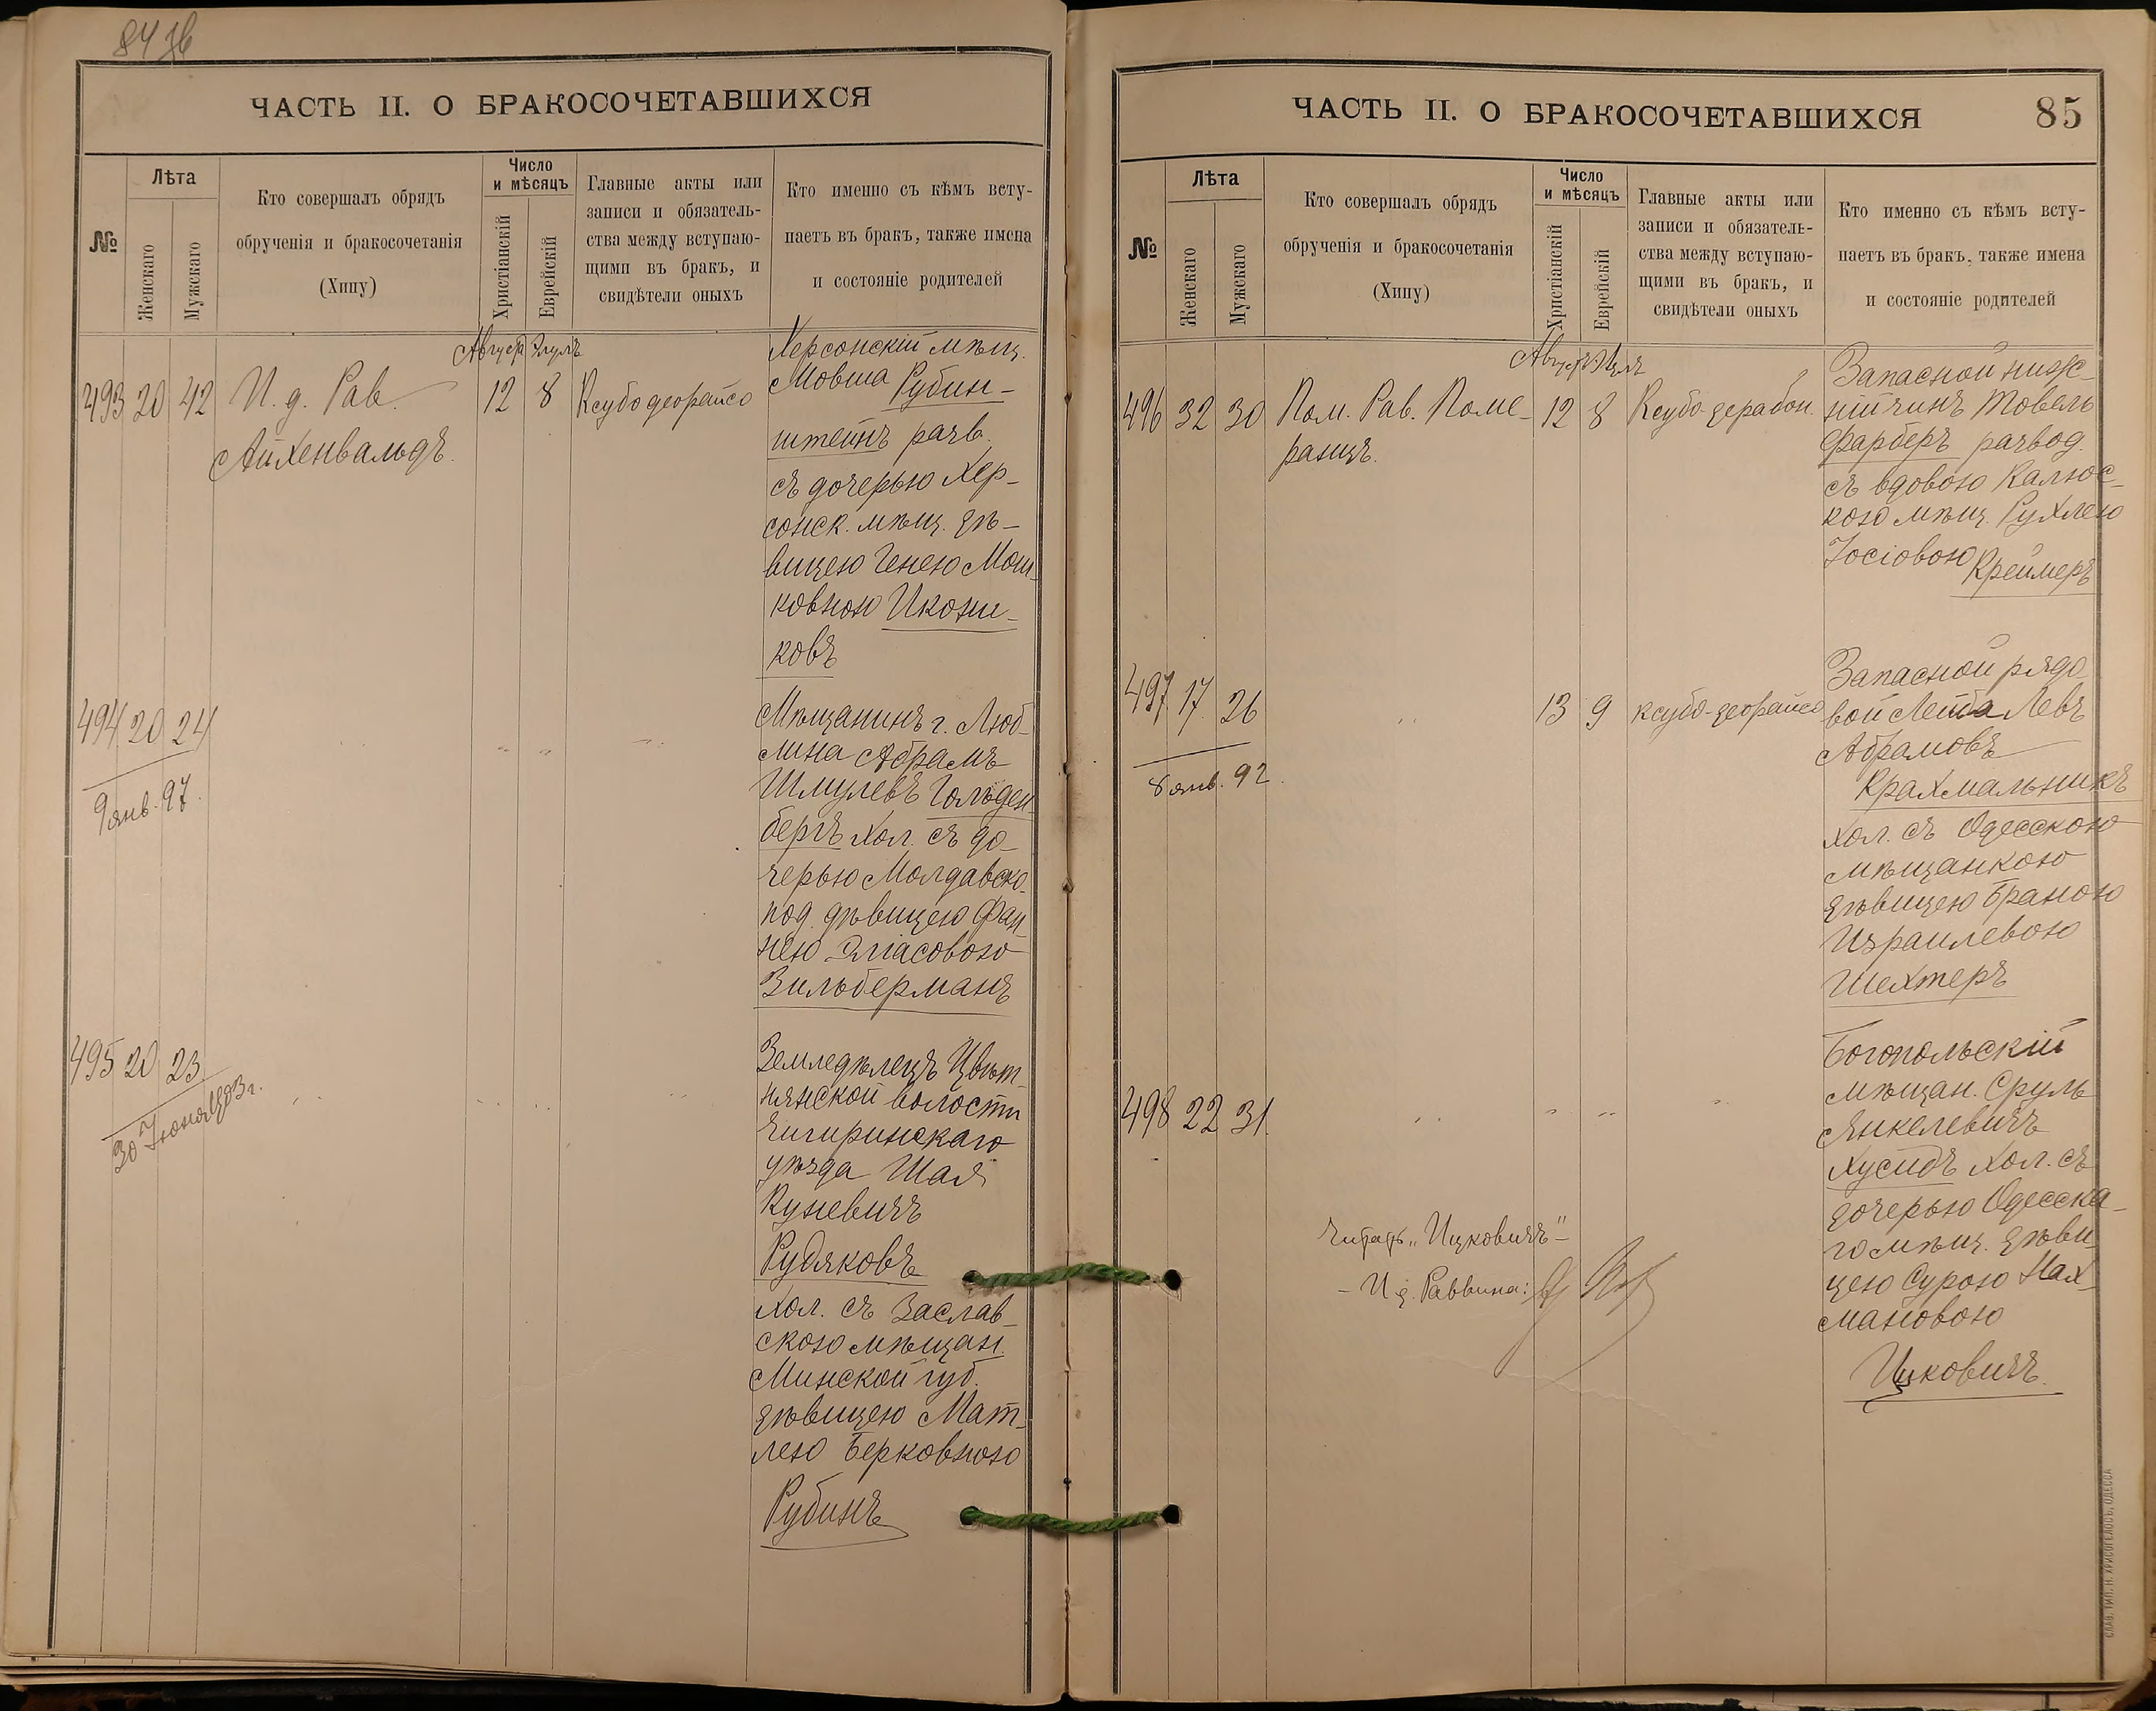 84 
ЧАСТЬ II. О БРАКОСОЧЕТАВШИХСЯ
№
Лѣта
Женскаго
Мужскаго
Кто совершалъ обрядъ
обрученія и бракосочетанія
(Хипу)
Число
и мѣсяцъ
Христіанскій
Еврейскій
Главные акты или
записи и обязатель-
ства между вступаю-
щими въ бракъ, и
свидѣтели оныхъ
Кто именно съ кѣмъ всту-
паетъ въ бракъ, также имена
и состояніе родителей
Август Элулъ
493 20 42 И. д. Рав. 12 8 Ксубо деорайсо
Айхенвальдъ.
Херсонскій мѣщ.
Мовша Рубин-
штейнъ разв.
съ дочерью Хер-
сонск. мѣщ. дѣ-
вицею Генею Мош-
ковною Икони-
ковъ
494 20 24
9 янв. 97.
Мѣщанинъ г. Люб-
лина Абрамъ
Шмулевъ Гольден-
бергъ хол. съ до-
черью Молдавско-
под. дѣвицею Фан-
нею Эліасовою
Зильберманъ
495 20 23
30 Іюня 903 г.
Земледѣлецъ Цвѣт-
нянской волости
Чигиринскаго
уѣзда Шая
Куневичъ
Рудяковъ
хол. съ Заслав-
скою мѣщан.
Минской губ.
дѣвицею Мат-
лею Берковною
Рубинъ
ЧАСТЬ II. О БРАКОСОЧЕТАВШИХСЯ
85
№
Лѣта
Женскаго
Мужскаго
Кто совершалъ обрядъ
обрученія и бракосочетанія
(Хипу)
Число
и мѣсяцъ
Христіанскій
Еврейскій
Главные акты или
записи и обязатель-
ства между вступаю-
щими въ бракъ, и
свидѣтели оныхъ
Кто именно съ кѣмъ всту-
паетъ въ бракъ, также имена
и состояніе родителей
Август Элулъ
496 32 30 Пом. Рав. Поме- 12 8 Ксубо-дерабон.
ранцъ.
Запасной ниж-
ній чинъ Товель
Фарберъ развод.
съ вдовою Калюс-
кою мѣщ. Рухлею
Іосіовою Креймеръ
497 17 26 13 9 ксубо-деорайсо
8 янв. 92.
Запасной рядо-
вой Лейба Левъ
Абрамовъ
Крахмальникъ
хол. съ Одесскою
мѣщанкою
дѣвицею Браною
Израилевою
Шехтеръ
498 22 31.
Богопольскій
мѣщан. Сруль
Янкелевичъ
Хусидъ хол. съ
дочерью Одесска-
го мѣщ. дѣви-
цею Сурою Нах-
мановою
Ицковичъ.
Читать „Ицковичъ“ -
- И д. Раввина:
СЛАВ. ТИП. Н. ХРИСОГЕЛОСЪ, ОДЕССА